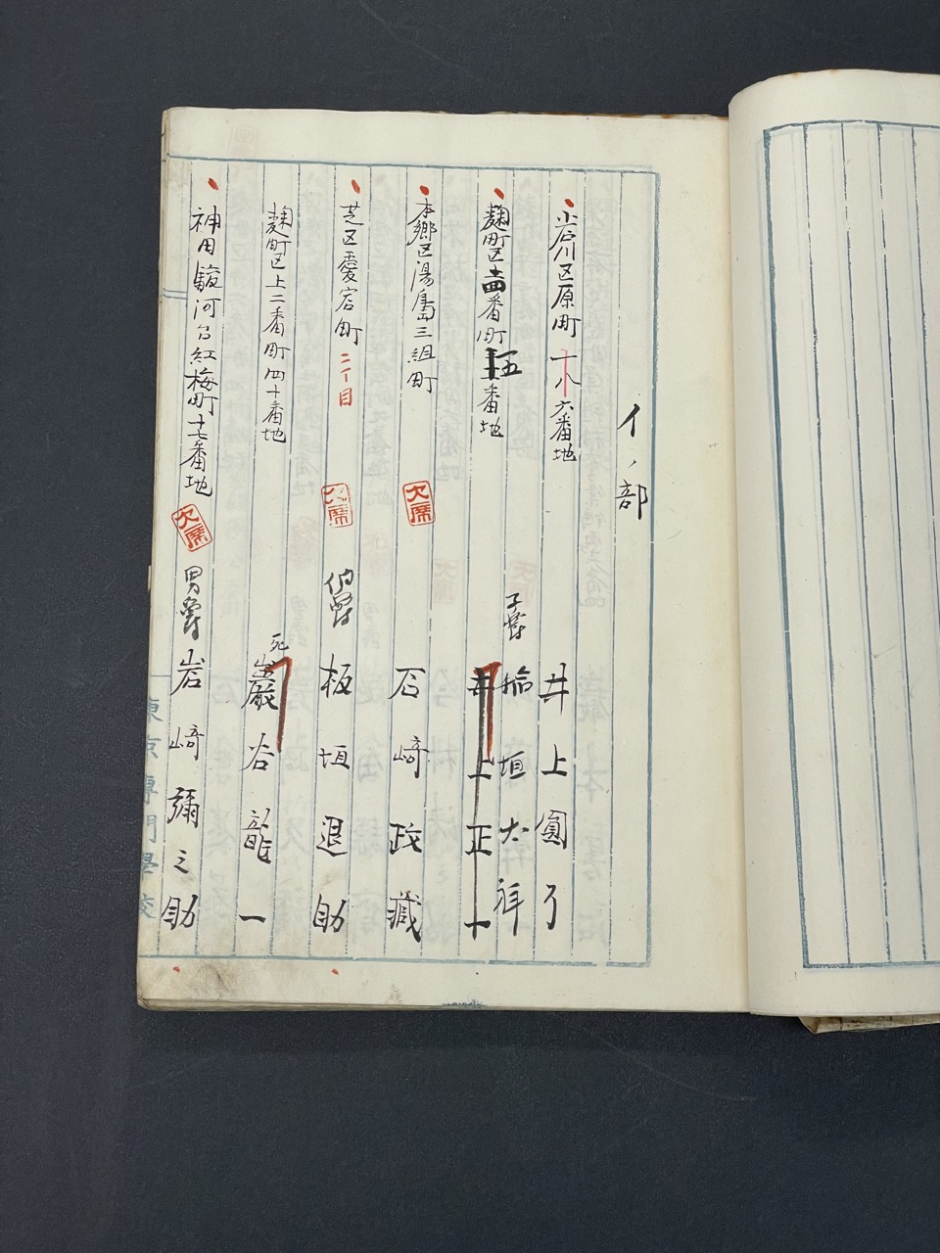 イノ部
小石川区原町十八六番地 井上圓了
子爵 稲垣太祥
麹町区番町五番地 井上正一
本郷区湯島三組町 欠席 石崎政蔵
芝区愛宕町二丁目 欠席 伯爵 板垣退助
麹町区上二番町四十番地 死 巖谷龍一
神田駿河台紅梅町十七番地 欠席 男爵 岩崎彌之助
東京専門學校